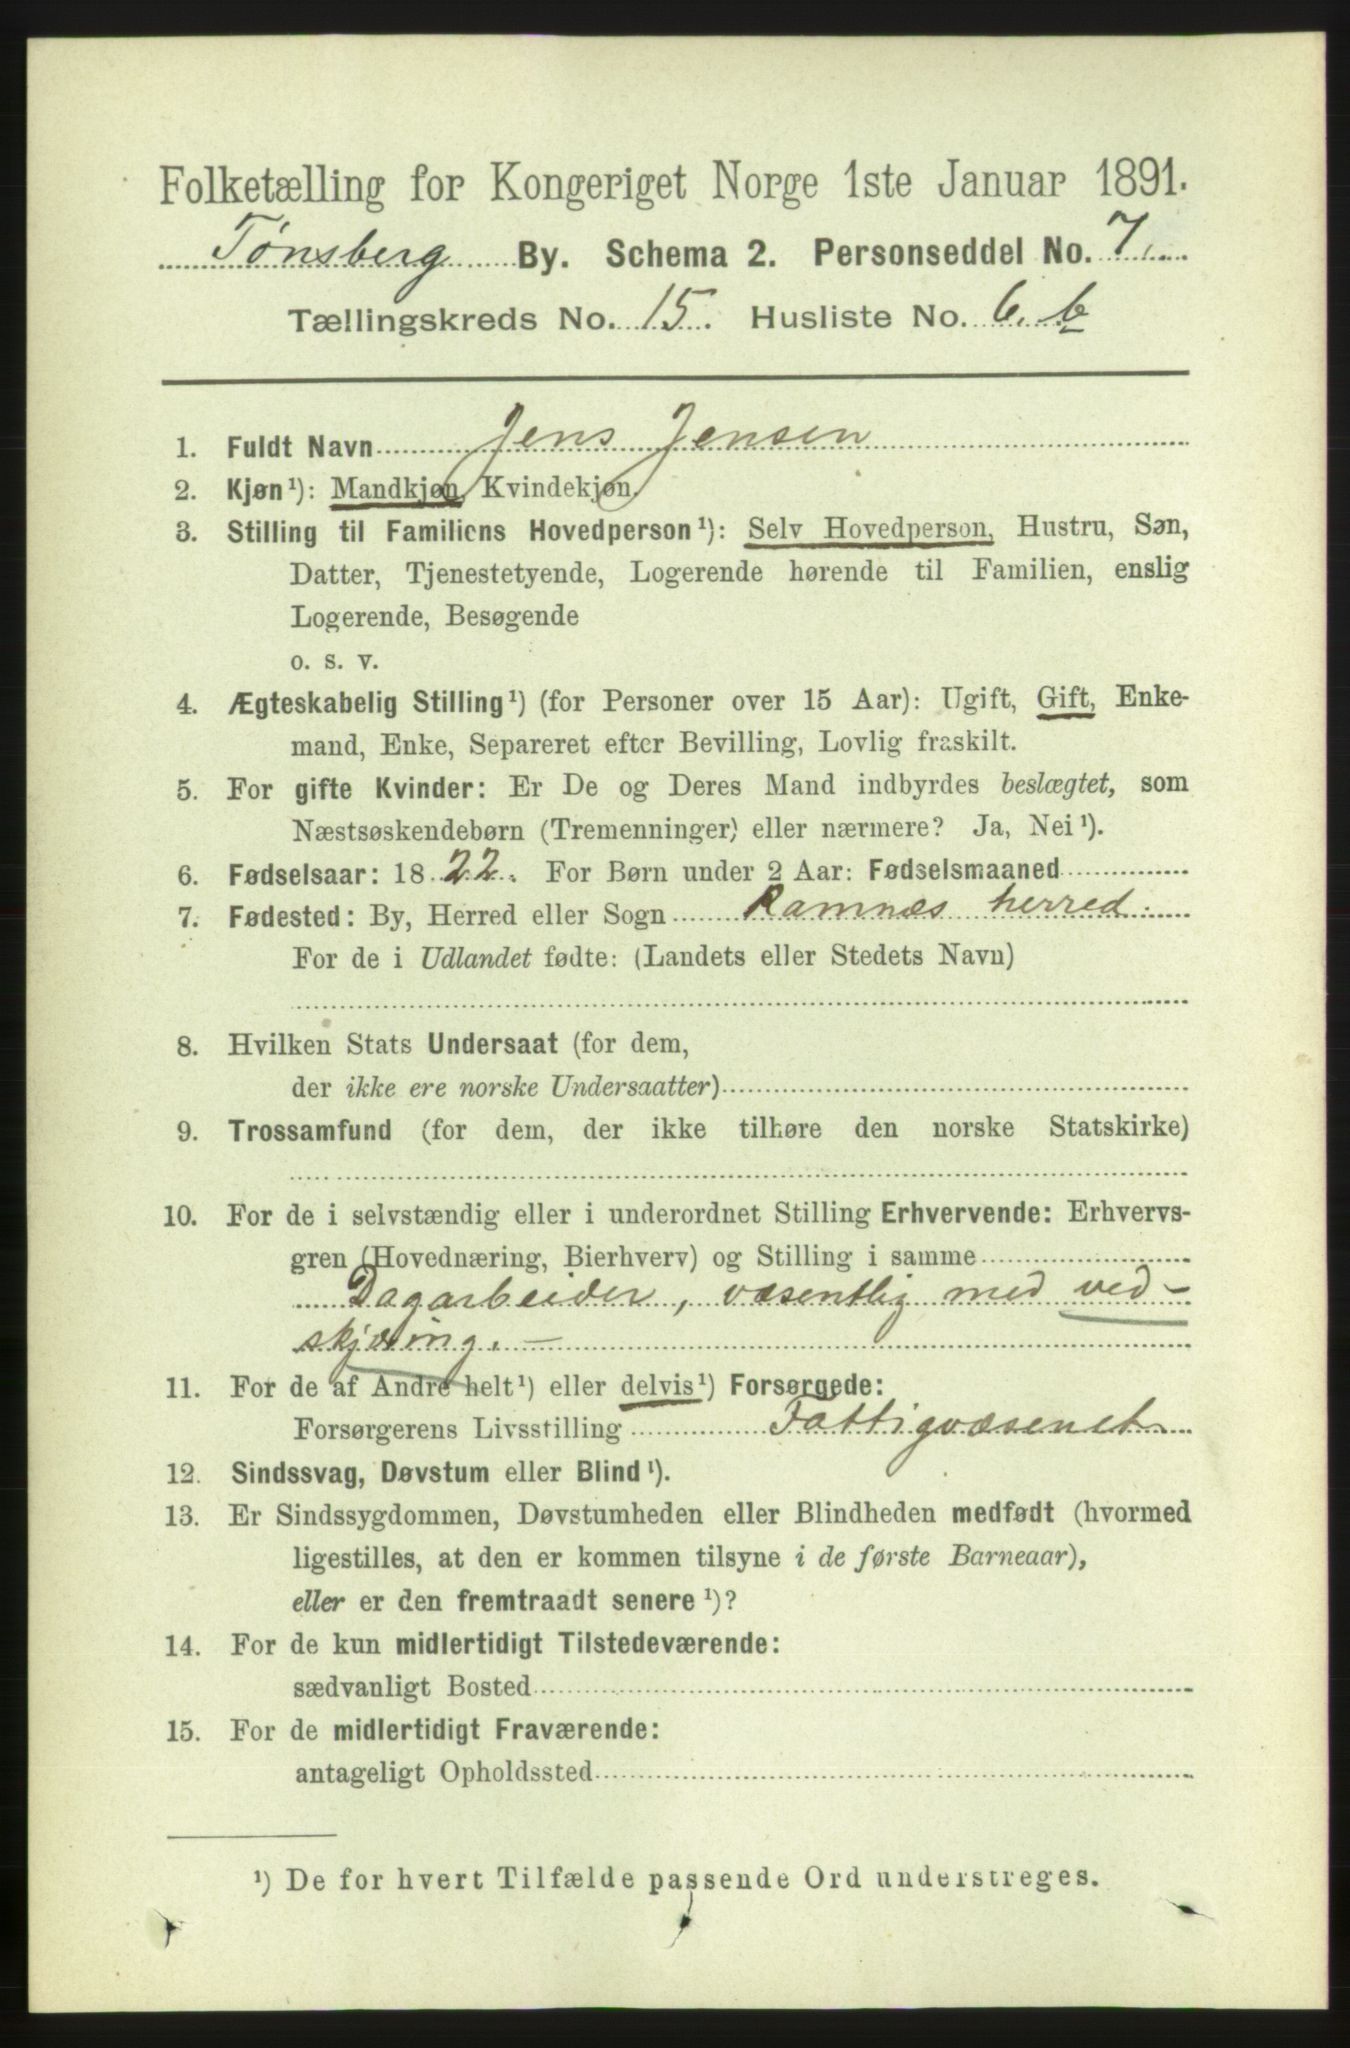 Folketælling for Kongeriget Norge 1ste Januar 1891.
Tønsberg By. Schema 2. Personseddel No. 7.
Tællingskreds No. 15. Husliste No. 6. b
1. Fuldt Navn Jens Jensen
2. Kjøn¹): Mandkjøn, Kvindekjøn.
3. Stilling til Familiens Hovedperson¹): Selv Hovedperson, Hustru, Søn,
Datter, Tjenestetyende, Logerende hørende til Familien, enslig
Logerende, Besøgende
o. s. v.
4. Ægteskabelig Stilling¹) (for Personer over 15 Aar): Ugift, Gift, Enke-
mand, Enke, Separeret efter Bevilling, Lovlig fraskilt.
5. For gifte Kvinder: Er De og Deres Mand indbyrdes beslægtet, som
Næstsøskendebørn (Tremenninger) eller nærmere? Ja, Nei¹).
6. Fødselsaar: 1822. For Børn under 2 Aar: Fødselsmaaned
7. Fødested: By, Herred eller Sogn Ramnæs herred.
For de i Udlandet fødte: (Landets eller Stedets Navn)
8. Hvilken Stats Undersaat (for dem,
der ikke ere norske Undersaatter)
9. Trossamfund (for dem, der ikke tilhøre den norske Statskirke)
10. For de i selvstændig eller i underordnet Stilling Erhvervende: Erhvervs-
gren (Hovednæring, Bierhverv) og Stilling i samme
Dagarbeider, væsentlig med ved-
skjæring. —
11. For de af Andre helt¹) eller delvis¹) Forsørgede:
Forsørgerens Livsstilling Fattigvæsenet.
12. Sindssvag, Døvstum eller Blind¹).
13. Er Sindssygdommen, Døvstumheden eller Blindheden medfødt (hvormed
ligestilles, at den er kommen tilsyne i de første Barneaar),
eller er den fremtraadt senere¹)?
14. For de kun midlertidigt Tilstedeværende:
sædvanligt Bosted
15. For de midlertidigt Fraværende:
antageligt Opholdssted
¹) De for hvert Tilfælde passende Ord understreges.